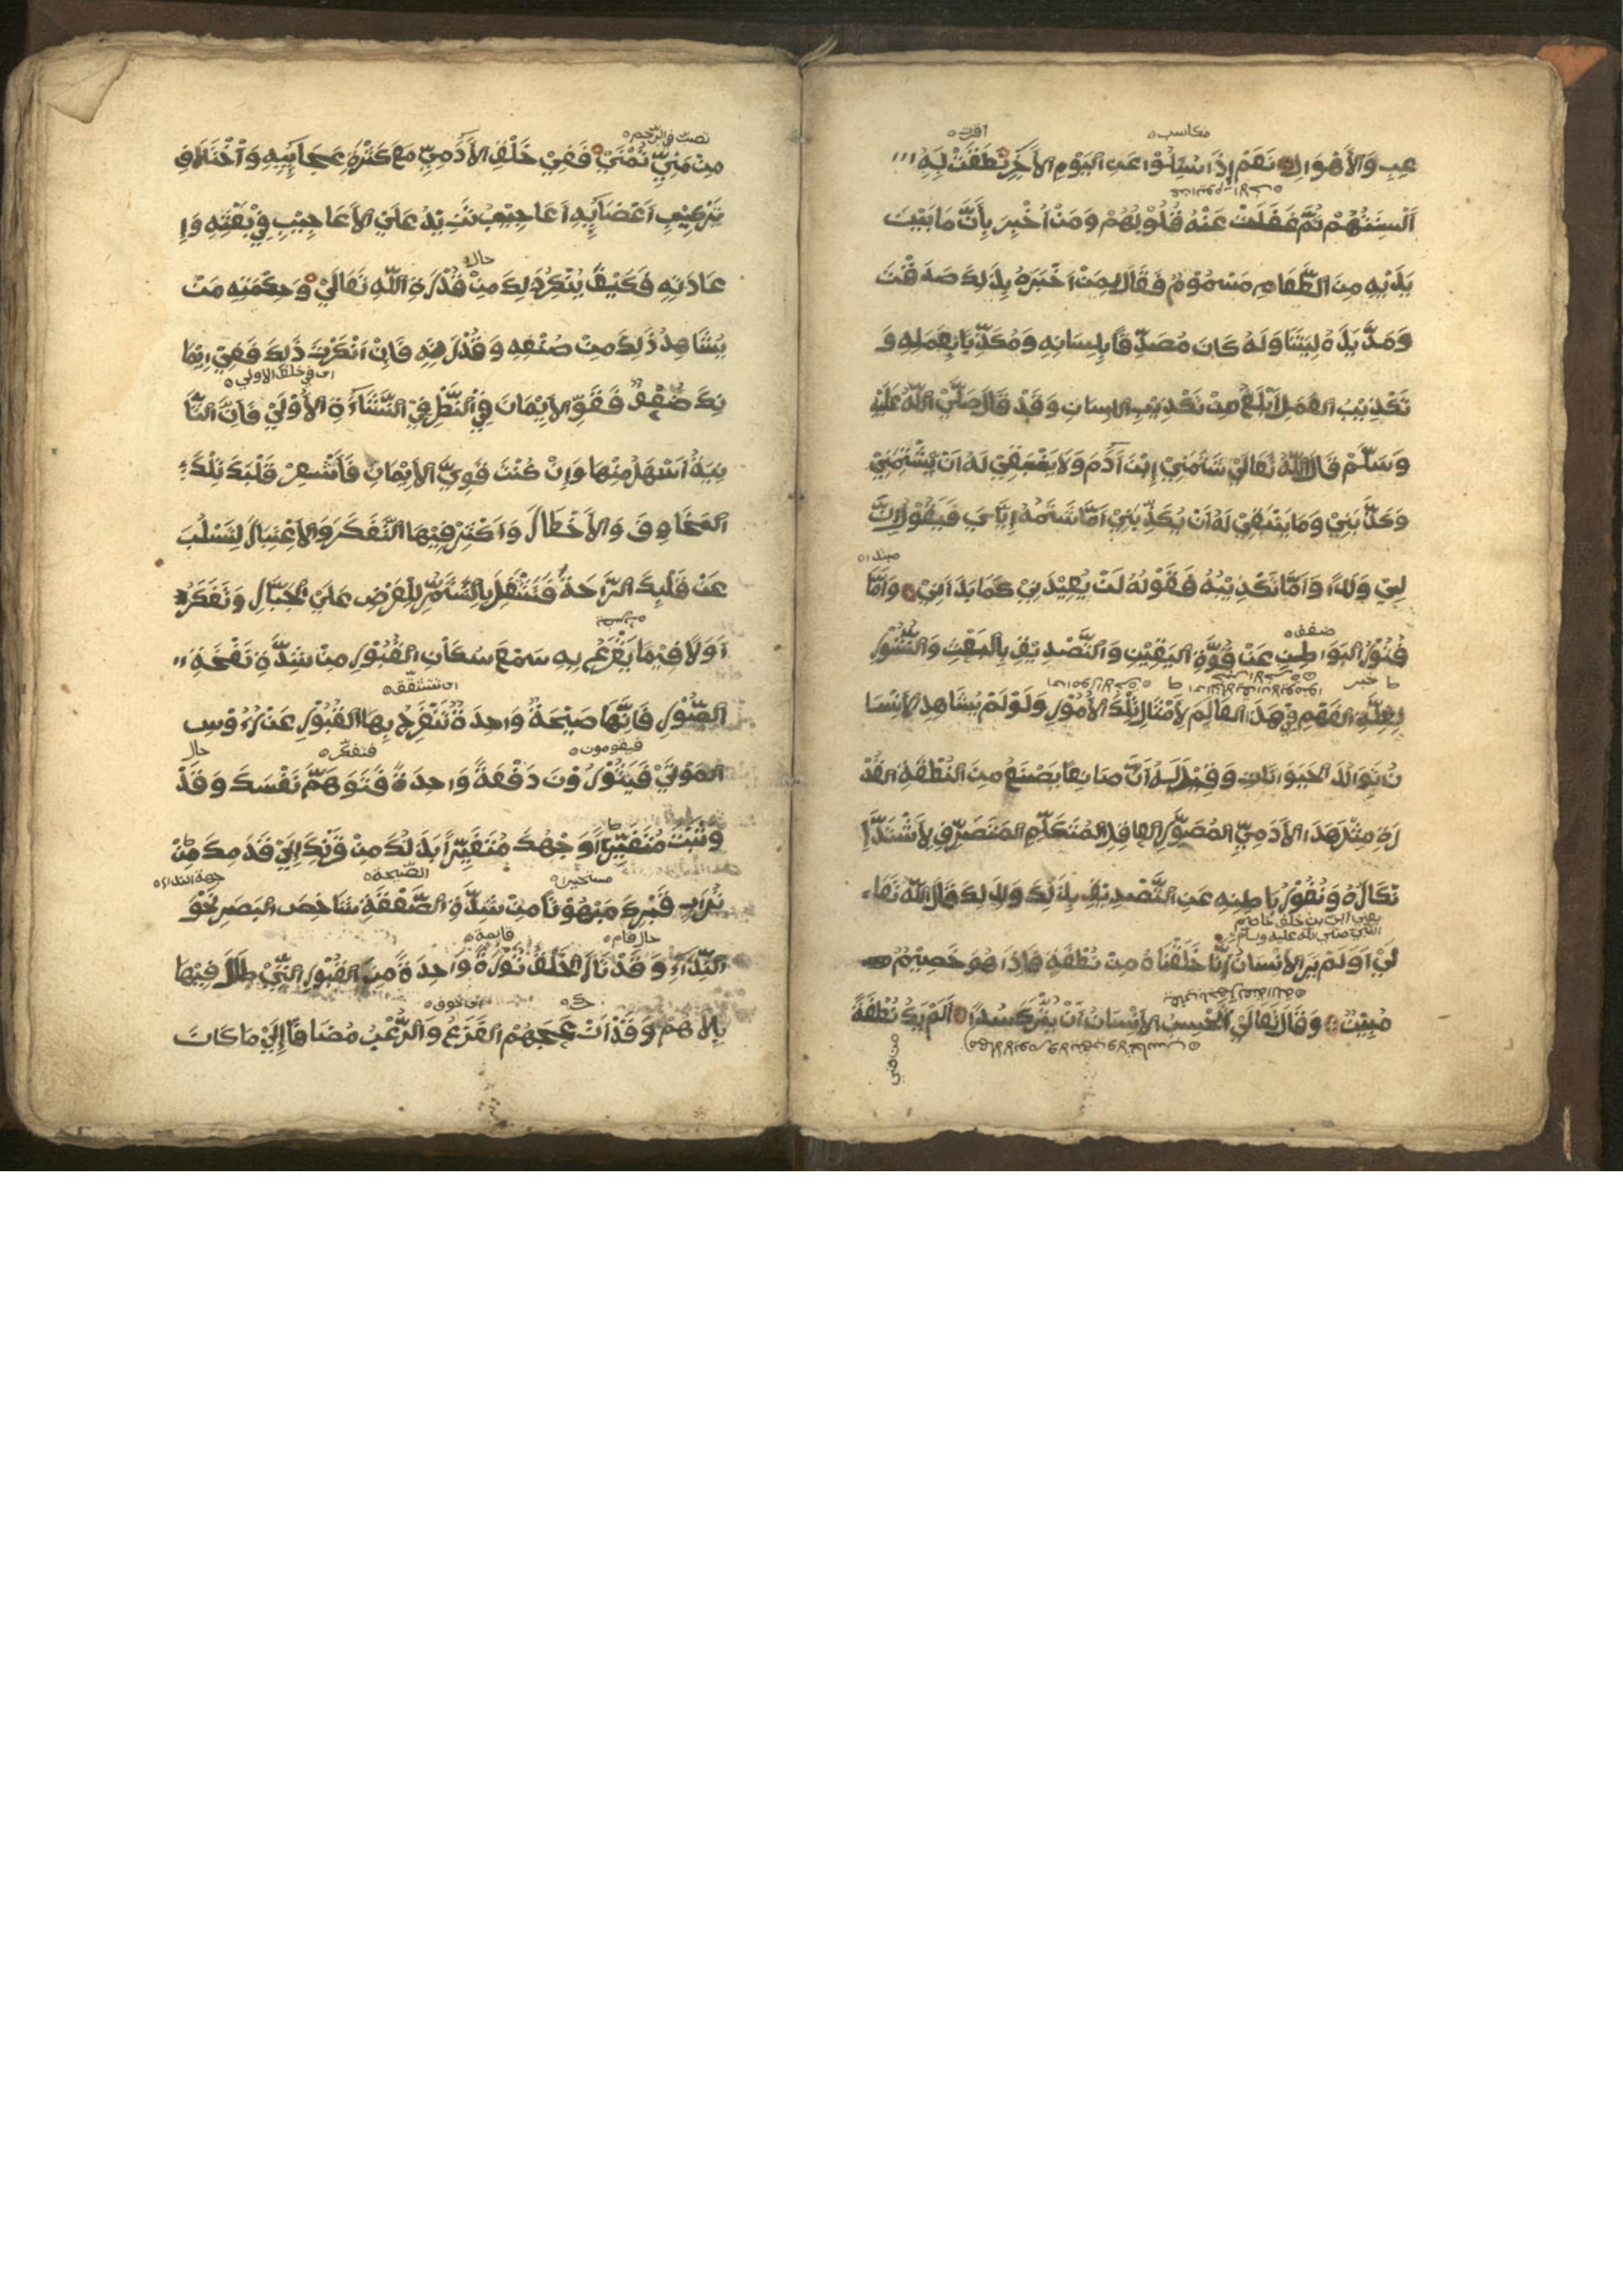 مكاسب
اقرت
عِبِ وَالْأَهْوَالِ نَعَمْ إِذَا سُئِلُوْا عَنِ الْيَوْمِ الْأَخِرِ نَطَقَتْ بِهِ
اَلْسِنَتُهُمْ ثُمَّ غَفَلَتْ عَنْهُ قُلُوْبُهُمْ وَمَنْ اُخْبِرَ بِأَنَّ مَا بَيْنَ
يَدَيْهِ مِنَ الطَّعَامِ مَسْمُوْمٌ فَقَالَ لِمَنْ اَخْبَرَهُ بِذَلِكَ صَدَقْتَ
وَمَدَّ يَدَهُ لِيَتَنَاوَلَهُ كَانَ مُصَدِّقًا بِلِسَانِهِ وَمُكَذِّبًا بِعَمَلِهِ وَ
تَكْذِيْبُ الْعَمَلِ اَبْلَغُ مِنْ تَكْذِيْبِ اللِسَانِ وَقَدْ قَالَ صَلَّيْ اللّٰهُ عَلَيْهِ
وَسَلَّمْ قَالَ اللّٰهُ تَعَالَيْ شَتَمَنِيْ اِبْنُ آدَمَ وَلَا يَنْبَغِيْ لَهُ اَنْ يَشْتِمَنِيْ
وَكَذَّبَنِيْ وَمَا يَنْبَغِيْ لَهُ اَنْ يُكَذِّبَنِيْ اَمَّا شَتْمُهُ اِيَّايَ فَيَقُوْلُ اِنَّ
لِيْ وَلَدًا وَاَمَّا تَكْذِيْبُهُ فَقَوْلُهُ لَنْ يُعِيْدَنِيْ كَمَا بَدَاَنِيْ وَاَمَّا
ضعف
فُتُوْرُ الْبَوَاطِنِ عَنْ قُوَّةِ الْيَقِيْنِ وَالتَّصْدِيْقِ بِالْبَعْثِ وَالنُّشُوْرِ
خبر
لِقِلَّةِ الْفَهْمِ فِيْ هَذَا الْعَالَمِ لِأَمْثَالِ تِلْكَ الْأُمُوْرِ وَلَوْ لَمْ يُشَاهِدِ الْأِنْسَا
نُ تَوَالُدَ الْحَيَوَانَاتِ وَقِيْلَ لَهُ اَنَّ صَانِعًا يَصْنَعُ مِنَ النُّطْفَةِ الْقَذْ
رَةِ مِثْلَ هَذَا الْأَدَمِيِّ الْمُصَوَّرِ الْعَاقِلِ الْمُتَكَلِّمِ الْمُتَصَرِّفِ لَأَشْتَدَّ اِ
نْكَارُهُ وَنُفُوْرُ بَاطِنِهِ عَنِ التَّصْدِيْقِ بِذَلِكَ وَلِذَلِكَ قَالَ اللّٰهُ تَعَا
يعني ابي بن خلف خاصم
النبي صلي الله عليه وسلم
لَيْ اَوَلَمْ يَرَ الْأِنْسَانُ اَنَّا خَلَقْنَاهُ مِنْ نُطْفَةٍ فَاِذَا هُوَ خَصِيْمٌ
مُبِيْنٌ وَقَالَ تَعَالَيْ اَيَحْسِبُ الْأِنْسَانُ اَنْ يُتْرَكَ سُدًا اَلَمْ يَكُ نُطْفَةً
من مني
تصب في الرحم
مِنْ مَنِيٍّ تُمْنَيْ فَفِيْ خَلْقِ الْأَدَمِيِّ مَعَ كَثْرَةِ عَجَايِبِهِ وَاخْتِلَافِ
تَرْكِيْبِ اَعْضَايِهِ اَعَاجِيْبُ تَزِيْدُ عَلَيْ الْأَعَاجِيْبِ فِيْ بَعْثِهِ وَاِ
حال
عَادَتِهِ فَكَيْفَ يُنْكِرُ ذَلِكَ مِنْ قُدْرَةِ اللّٰهِ تَعَالَيْ وَحِكْمَتِهِ مَنْ
يُشَاهِدُ ذَلِكَ مِنْ صُنْعِهِ وَقُدْرَتِهِ فَاِنْ اَنْكَرْتَ ذَلِكَ فَفِيْ اِيْمَا
اي في خلق الاولي
نِكَ ضُعْفٌ فَقَوِّ الْأِيْمَانَ فِيْ النَّظْرِ فِيْ النَّشْاَءَةِ الْأُوْلَيْ فَاِنَّ الثَّا
نِيَةَ اَسْهَلُ مِنْهَا وَاِنْ كُنْتَ قَوِيَّ الْأِيْمَانِ فَاَشْعِرْ قَلْبَكَ تِلْكَ
الْمَخَاوِفَ وَالْأَخْطَارَ وَاَكْثِرْ فِيْهَا التَّفَكُّرَ وَالْأِعْتِبَارَ لِتَسْلُبَ
عَنْ قَلْبِكَ الرَّاحَةَ فَتَشْتَغِلَ بِالتَّشَمُّرِ لِلْعَرْضِ عَلَيْ الْجَبَّارِ وَتَفَكَّرْ
اَوَّلًا فِيْمَا يَقْرَعُ بِهِ سَمْعَ سُكَّانِ الْقُبُوْرِ مِنْ شِدَّةِ نَفْخَةِ
اي تتشقق
الصُّوْرِ فَاِنَّهَا صَيْحَةٌ وَاحِدَةٌ تَنْفَرِجُ بِهَا الْقُبُوْرُ عَنْ رُءُوْسِ
فيقومون
فتفكر
حال
الْمَوْتَيْ فَيَثُوْرُوْنَ دَفْعَةً وَاحِدَةً فَتَوَهَّمْ نَفْسَكَ وَقَدْ
وَثَبْتَ مُتَغَيِّرًا وَجْهُكَ مُتَغَيِّرًا بَدَنُكَ مِنْ قَرْنِكَ اِلَيْ قَدَمِكَ مِنْ
متحيرا
الصيحة
جهة النداء
تُرَابِ قَبْرِكَ مَبْهُوْتًا مِنْ شِدَّةِ الصَّعْقَةِ شَاخِصَ الْبَصَرِ نَحْوَ
حال قام
قايمة
النِّدَاءِ وَقَدْ ثَارَ الْخَلْقُ ثَوْرَةً وَاحِدَةً مِنَ الْقُبُوْرِ الَّتِيْ طَالَ فِيْهَا
اي خوف
بِلَاهُمْ وَقَدْ اَزْعَجَهُمْ الْفَزَعُ وَالرُّعْبُ مُضَافًا اِلَيْ مَا كَانَ